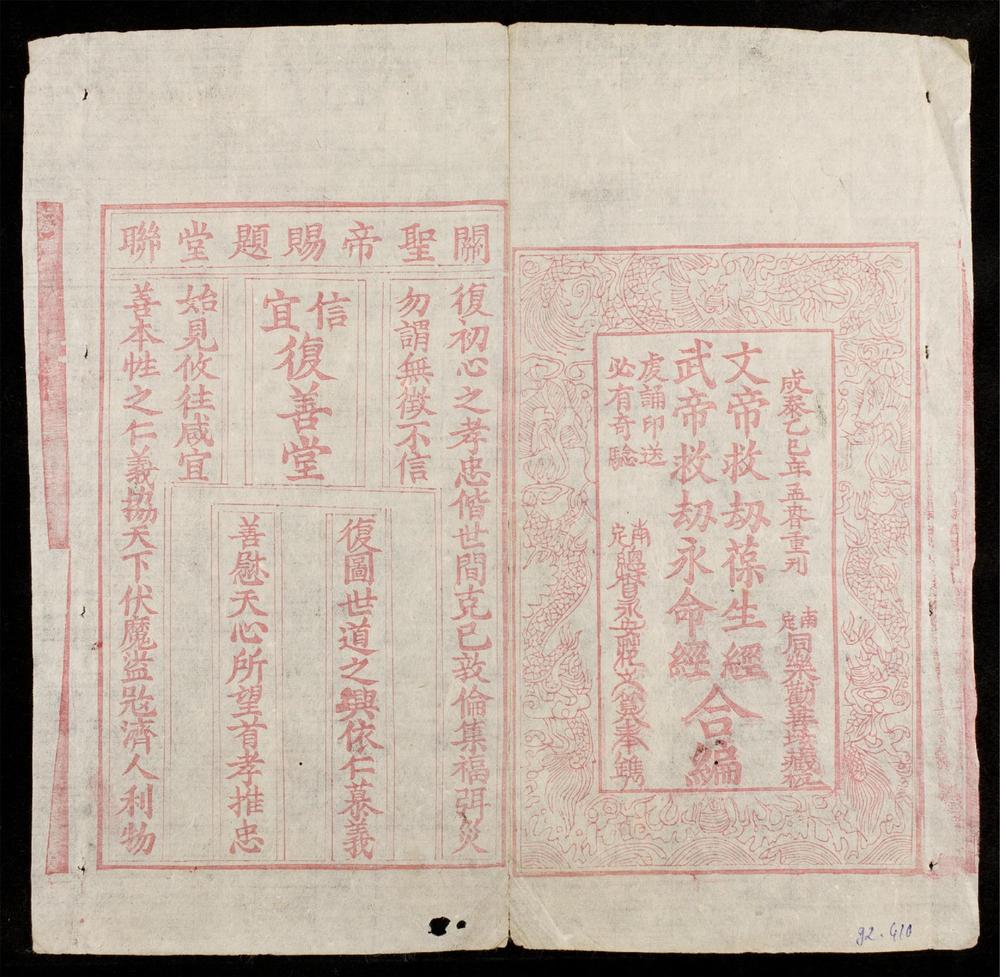 成泰乙巳年孟春重刊
南定同樂勸善壇藏板
文帝救劫葆生經
武帝救劫永命經
合編
虔誦印送
必有奇驗
南定總督
奉鐫
關聖帝賜題堂聯
復初心之孝忠偕世間克己敦倫集福弭災
勿謂無徵不信
信宜
復善堂
復圖世道之興依仁慕義
善慰天心所望首孝推忠
始見攸往咸宜
善本性之仁義揚天下伏魔盪兇濟人利物
92.410